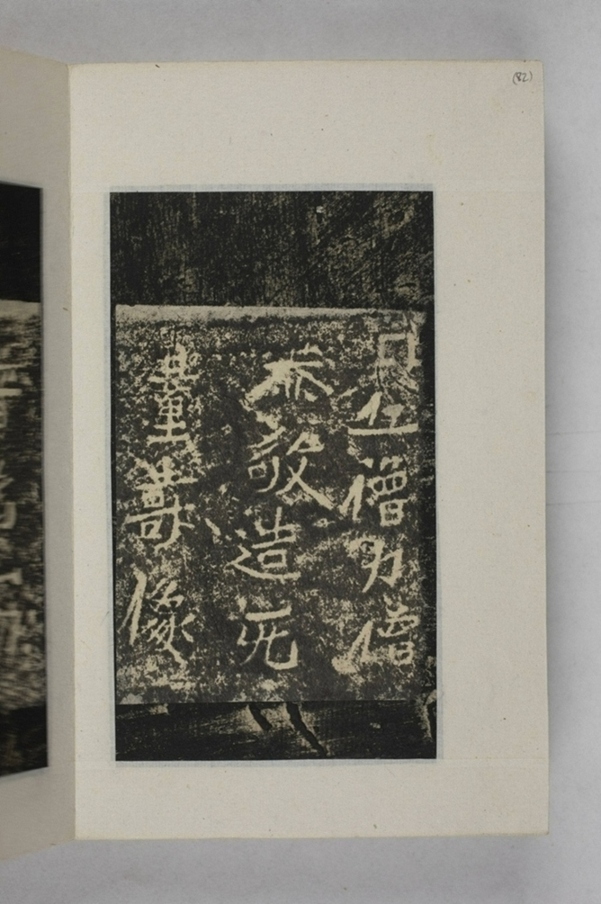 (82)
丘僧力僧
恭敬造无
量壽像